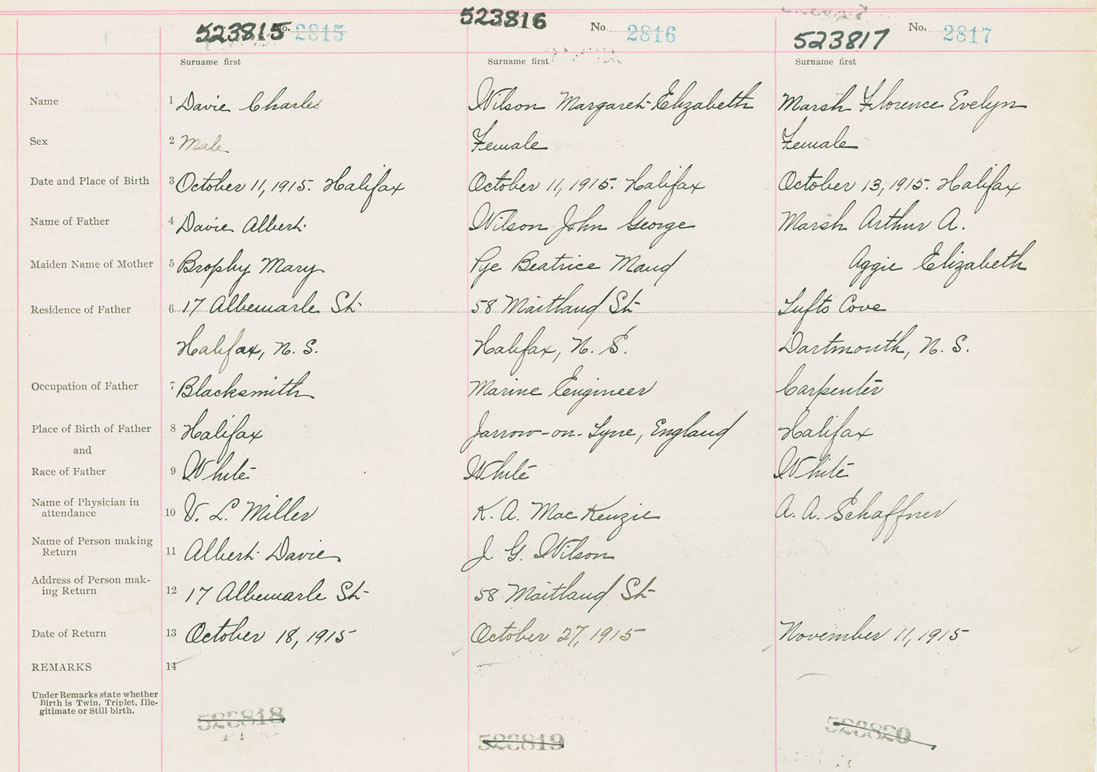 523815 No. 2815 523816 No. 2816 523817 No. 2817
Surname first Surname first Surname first
Name 1 Davie Charles Wilson Margaret Elizabeth Marsh Florence Evelyn
Sex 2 Male Female Female
Date and Place of Birth 3 October 11, 1915. Halifax October 11, 1915. Halifax October 13, 1915. Halifax
Name of Father 4 Davie Albert Wilson John George Marsh Arthur A.
Maiden Name of Mother 5 Brophy Mary Pye Beatrice Maud Aggie Elizabeth
Residence of Father 6 17 Albemarle St. 58 Maitland St. Tufts Cove
Halifax, N. S. Halifax, N. S. Dartmouth, N. S.
Occupation of Father 7 Blacksmith Marine Engineer Carpenter
Place of Birth of Father 8 Halifax Jarrow-on-Tyne, England Halifax
and
Race of Father 9 White White White
Name of Physician in
attendance 10 V. L. Miller K. A. MacKenzie A. A. Schaffner
Name of Person making
Return 11 Albert Davie J. G. Wilson
Address of Person mak-
ing Return 12 17 Albemarle St. 58 Maitland St.
Date of Return 13 October 18, 1915 October 27, 1915 November 11, 1915
REMARKS 14
Under Remarks state whether
Birth is Twin, Triplet, Ille-
gitimate or Still birth.
523818 523819 523820